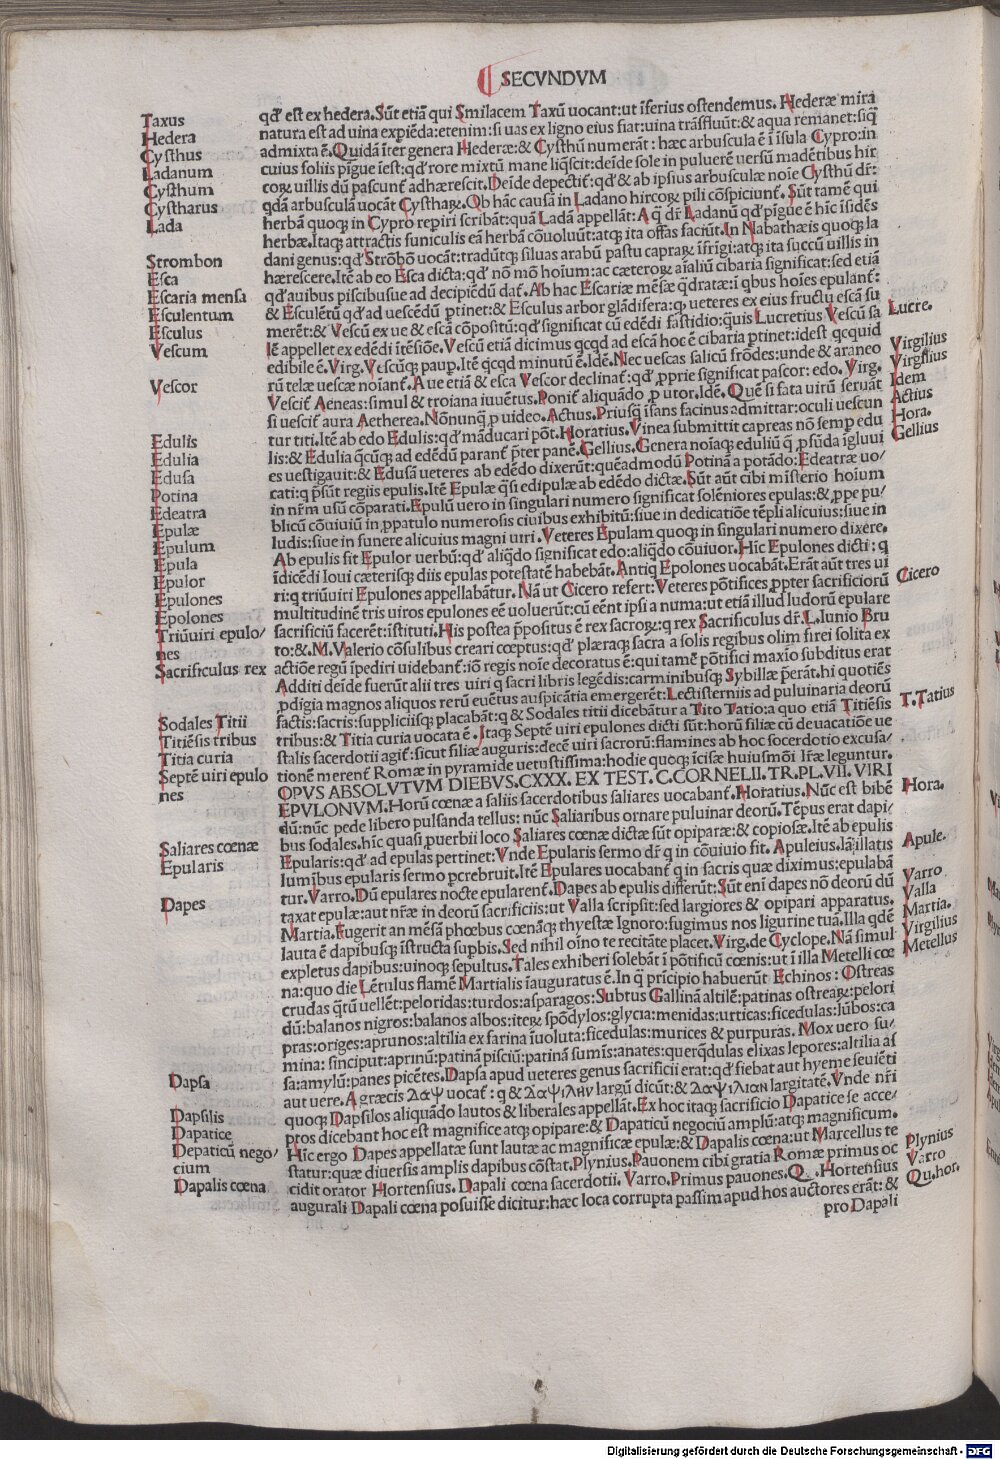 SECVNDVM
Taxus
Hedera
Cysthus
Ladanum
Cysthum
Cystharus
Lada
Strombon
Esca
Escaria mensa
Esculentum
Esculus
Vescum
Vescor
Edulis
Edulia
Edusa
Potina
Edeatra
Epulæ
Epulum
Epula
Epulor
Epulones
Epolones
Triūuiri epulo/
nes
Sacrificulus rex
Sodales Titii
Titiēsis tribus
Titia curia
Septē uiri epulo
nes
Saliares cœnæ
Epularis
Dapes
Dapsa
Dapsilis
Dapatice
Depaticū nego/
cium
Dapalis cœna
qđ est ex hedera.Sūt etiā qui Smilacem Taxū uocant:ut īferius ostendemus. Hederæ mira
natura est ad uina expiēda:etenim:si uas ex ligno eius fiat:uina trāsfluūt:& aqua remanet:siq̄
admixta ē.Quidā īter genera Hederæ:& Cysthū numerāt: hæc arbuscula ē ī īsula Cypro:in
cuius foliis pīgue īest:qđ rore mixtū mane liq̄scit:deīde sole in puluerē uersū madētibus hir
coꝝ uillis dū pascunt̄ adhærescit.Deīde depectit̄:qđ & ab ipsius arbusculæ noīe Cysthū dr̄:
qdā arbusculā uocāt Cysthaꝝ.Ob hāc causā in Ladano hircoꝝ pili cōspiciunt̄. Sūt tamē qui
herbā quoqꝫ in Cypro repiri scribāt:quā Ladā appellāt: A q̄ dr̄ Ladanū qđ pīgue ē hīc īsidēs
herbæ.Itaqꝫ attractis funiculis eā herbā cōuoluūt:atqꝫ ita offas faciūt.In Nabathæis quoqꝫ la
dani genus:qđ Strōbō uocāt:tradūtqꝫ siluas arabū pastu capraꝝ īfrigi:atqꝫ ita succū uillis in
hærescere.Itē ab eo Esca dicta:qđ nō mō hoīum:ac cæteroꝝ aīaliū cibaria significat:sed etiā
qđ auibus piscibusue ad decipiēdū dat̄.Ab hac Escariæ mēsæ q̄dratæ:ī qbus hoīes epulant̄:
& Esculētū qđ ad uescēdū ꝑtinet:& Esculus arbor glādifera:q̄ ueteres ex eius fructu escā su
merēt:& Vescū ex ue & escā cōpositū:qđ significat cū edēdi fastidio:q̄uis Lucretius Vescū sa
lē appellet ex edēdi ītēsiōe.Vescū etiā dicimus qcqd ad escā hoc ē cibaria ꝑtinet:idest qcquid
edibile ē.Virg.Vescūqꝫ pauꝑ.Itē q̄cqd minutū ē.Idē.Nec uescas salicū frōdes:unde & araneo
rū telæ uescæ noīant̄.A ue etiā & esca Vescor declinat̄:qđ ꝓprie significat pascor: edo. Virg.
Vescit̄ Aeneas:simul & troiana iuuētus.Ponit̄ aliquādo ꝓ utor.Idē. Quē si fata uirū seruāt
si uescit̄ aura Aetherea.Nōnunq̄ ꝓ uideo.Actius.Priusq̄ īfans facinus admittar:oculi uescun
tur titi.Itē ab edo Edulis:qđ māducari pōt.Horatius.Vinea submittit capreas nō semꝑ edu
lis:& Edulia q̄cūqꝫ ad edēdū parant̄ p̄ter panē.Gellius.Genera noīaqꝫ eduliū q̄ ꝓfūda īgluui
es uestigauit:& Edusā ueteres ab edēdo dixerūt:quēadmodū Potinā a potādo:Edeatræ uo/
cati:q p̄sūt regiis epulis.Itē Epulæ q̄si edipulæ ab edēdo dictæ.Sūt aūt cibi mīsterio hoīum
in nr̄m usū cōparati.Epulū uero in singulari numero significat solēniores epulas:& ꝓppe pu/
blicū cōuiuiū in ꝓpatulo numerosis ciuibus exhibitū:siue in dedicatiōe tēpli alicuius:siue in
ludis:siue in funere alicuius magni uiri. Veteres Epulam quoqꝫ in singulari numero dixere.
Ab epulis fit Epulor uerbū:qđ aliq̄do significat edo:aliq̄do cōuiuor.Hīc Epulones dicti: q
īdicēdi Ioui cæterisqꝫ diis epulas potestatē habebāt.Antiq Epolones uocabāt.Erāt aūt tres ui
ri:q triūuiri Epulones appellabātur.Nā ut Cicero refert:Veteres pōtifices ꝓpter sacrificiorū
multitudinē tris uiros epulones eē uoluerūt:cū eēnt ipsi a numa:ut etiā illud ludorū epulare
sacrificiū facerēt:īstituti.His postea p̄positus ē rex sacroꝝ:q rex Sacrificulus dr̄.L.Iunio Bru
to:& M.Valerio cōsulibus creari cœptus:qđ plæraqꝫ sacra a solis regibus olim fierei solita ex
actiōe regū īpediri uidebant̄:iō regis noīe decoratus ē:qui tamē pōtifici maxīo subditus erat
Additi deīde fuerūt alii tres uiri q sacri libris legēdis:carminibusqꝫ Sybillæ p̄erāt.hi quotiēs
ꝓdigia magnos aliquos rerū euētus auspicātia emergerēt:Lectisterniis ad puluinaria deorū
factis:sacris:suppliciisqꝫ placabāt:q & Sodales titii dicebātur a Tito Tatio:a quo etiā Titiēsis
tribus:& Titia curia uocata ē. Itaqꝫ Septē uiri epulones dicti sūt:horū filiæ cū de uacatiōe ue
stalis sacerdotii agit̄:sicut filiæ auguris:decē uiri sacrorū:flamines ab hoc socerdotio excusa/
tionē merent̄ Romæ in pyramide uetustissima:hodie quoqꝫ īcisæ huiusmōi lr̄æ leguntur.
OPVS ABSOLVTVM DIEBVS.CXXX. EX TEST. C.CORNELII. TR.PL.VII. VIRI
EPVLONVM.Horū cœnæ a saliis sacerdotibus saliares uocabant̄.Horatius.Nūc est bibē
dū:nūc pede libero pulsanda tellus: nūc Saliaribus ornare puluinar deorū.Tēpus erat dapi/
bus sodales.hīc quasi ꝓuerbii loco Saliares cœnæ dictæ sūt opiparæ:& copiosæ.Itē ab epulis
Epularis:qđ ad epulas pertinet:Vnde Epularis sermo dr̄ q in cōuiuio fit. Apuleius.Iā:illatis
lumībus epularis sermo ꝑcrebruit.Itē Epulares uocabant̄ q in sacris quæ diximus:epulabā
tur.Varro.Dū epulares nocte epularent̄.Dapes ab epulis differūt:Sūt enī dapes nō deorū dū
taxat epulæ:aut nr̄æ in deorū sacrificiis:ut Valla scripsit:sed largiores & opipari apparatus.
Martia.Fugerit an mēsā phœbus cœnāqꝫ thyestæ Ignoro:fugimus nos ligurine tuā.Illa qdē
lauta ē dapibusqꝫ īstructa suꝑbis.Sed nihil oīno te recitāte placet.Virg.de Cyclope.Nā simul
expletus dapibus:uinoqꝫ sepultus.Tales exhiberi solebāt ī pōtificū cœnis:ut ī illa Metelli cœ
na:quo die Lētulus flamē Martialis īauguratus ē.In q̄ prīcipio habuerūt Echinos: Ostreas
crudas q̄tū uellēt:peloridas:turdos:asparagos:Subtus Gallinā altilē:patinas ostreaꝝ:pelori
dū:balanos nigros:balanos albos:iteꝝ spōdylos:glycia:menidas:urticas:ficedulas:lūbos:ca
pras:origes:aprunos:altilia ex farina īuoluta:ficedulas:murices & purpuras. Mox uero su/
mina: sinciput:aprinū:patinā pisciū:patinā sumīs:anates:querq̄dulas elixas lepores:altilia as
sa:amylū:panes picētes.Dapsa apud ueteres genus sacrificii erat:qđ fiebat aut hyeme seuiēti
aut uere.A græcis δαψ uocat̄: q & δαψιλην largū dicūt:& δαψιλιαν largitatē.Vnde nr̄i
quoqꝫ Dapsilos aliquādo lautos & liberales appellāt.Ex hoc itaqꝫ sacrificio Dapatice se acce/
ptos dicebant hoc est magnifice atqꝫ opipare:& Dapaticū negociū amplū:atqꝫ magnificum.
Hīc ergo Dapes appellatæ sunt lautæ ac magnificæ epulæ:& Dapalis cœna:ut Marcellus te
statur:quæ diuersis amplis dapibus cōstat.Plynius.Pauonem cibi gratia Romæ primus oc
cidit orator Hortensius. Dapali cœna sacerdotii. Varro.Primus pauones.Q. Hortensius
augurali Dapali cœna posuisse dicitur:hæc loca corrupta passim apud hos auctores erāt: &
pro Dapali
Lucre.
Virgilius
Virgilius
Idem
Actius
Hora.
Gellius
Cicero
T.Tatius
Hora.
Apule.
Varro
Valla
Martia.
Virgilius
Metellus
Plynius
Varro
Qu.hor.
Digitalisierung gefördert durch die Deutsche Forschungsgemeinschaft - DFG